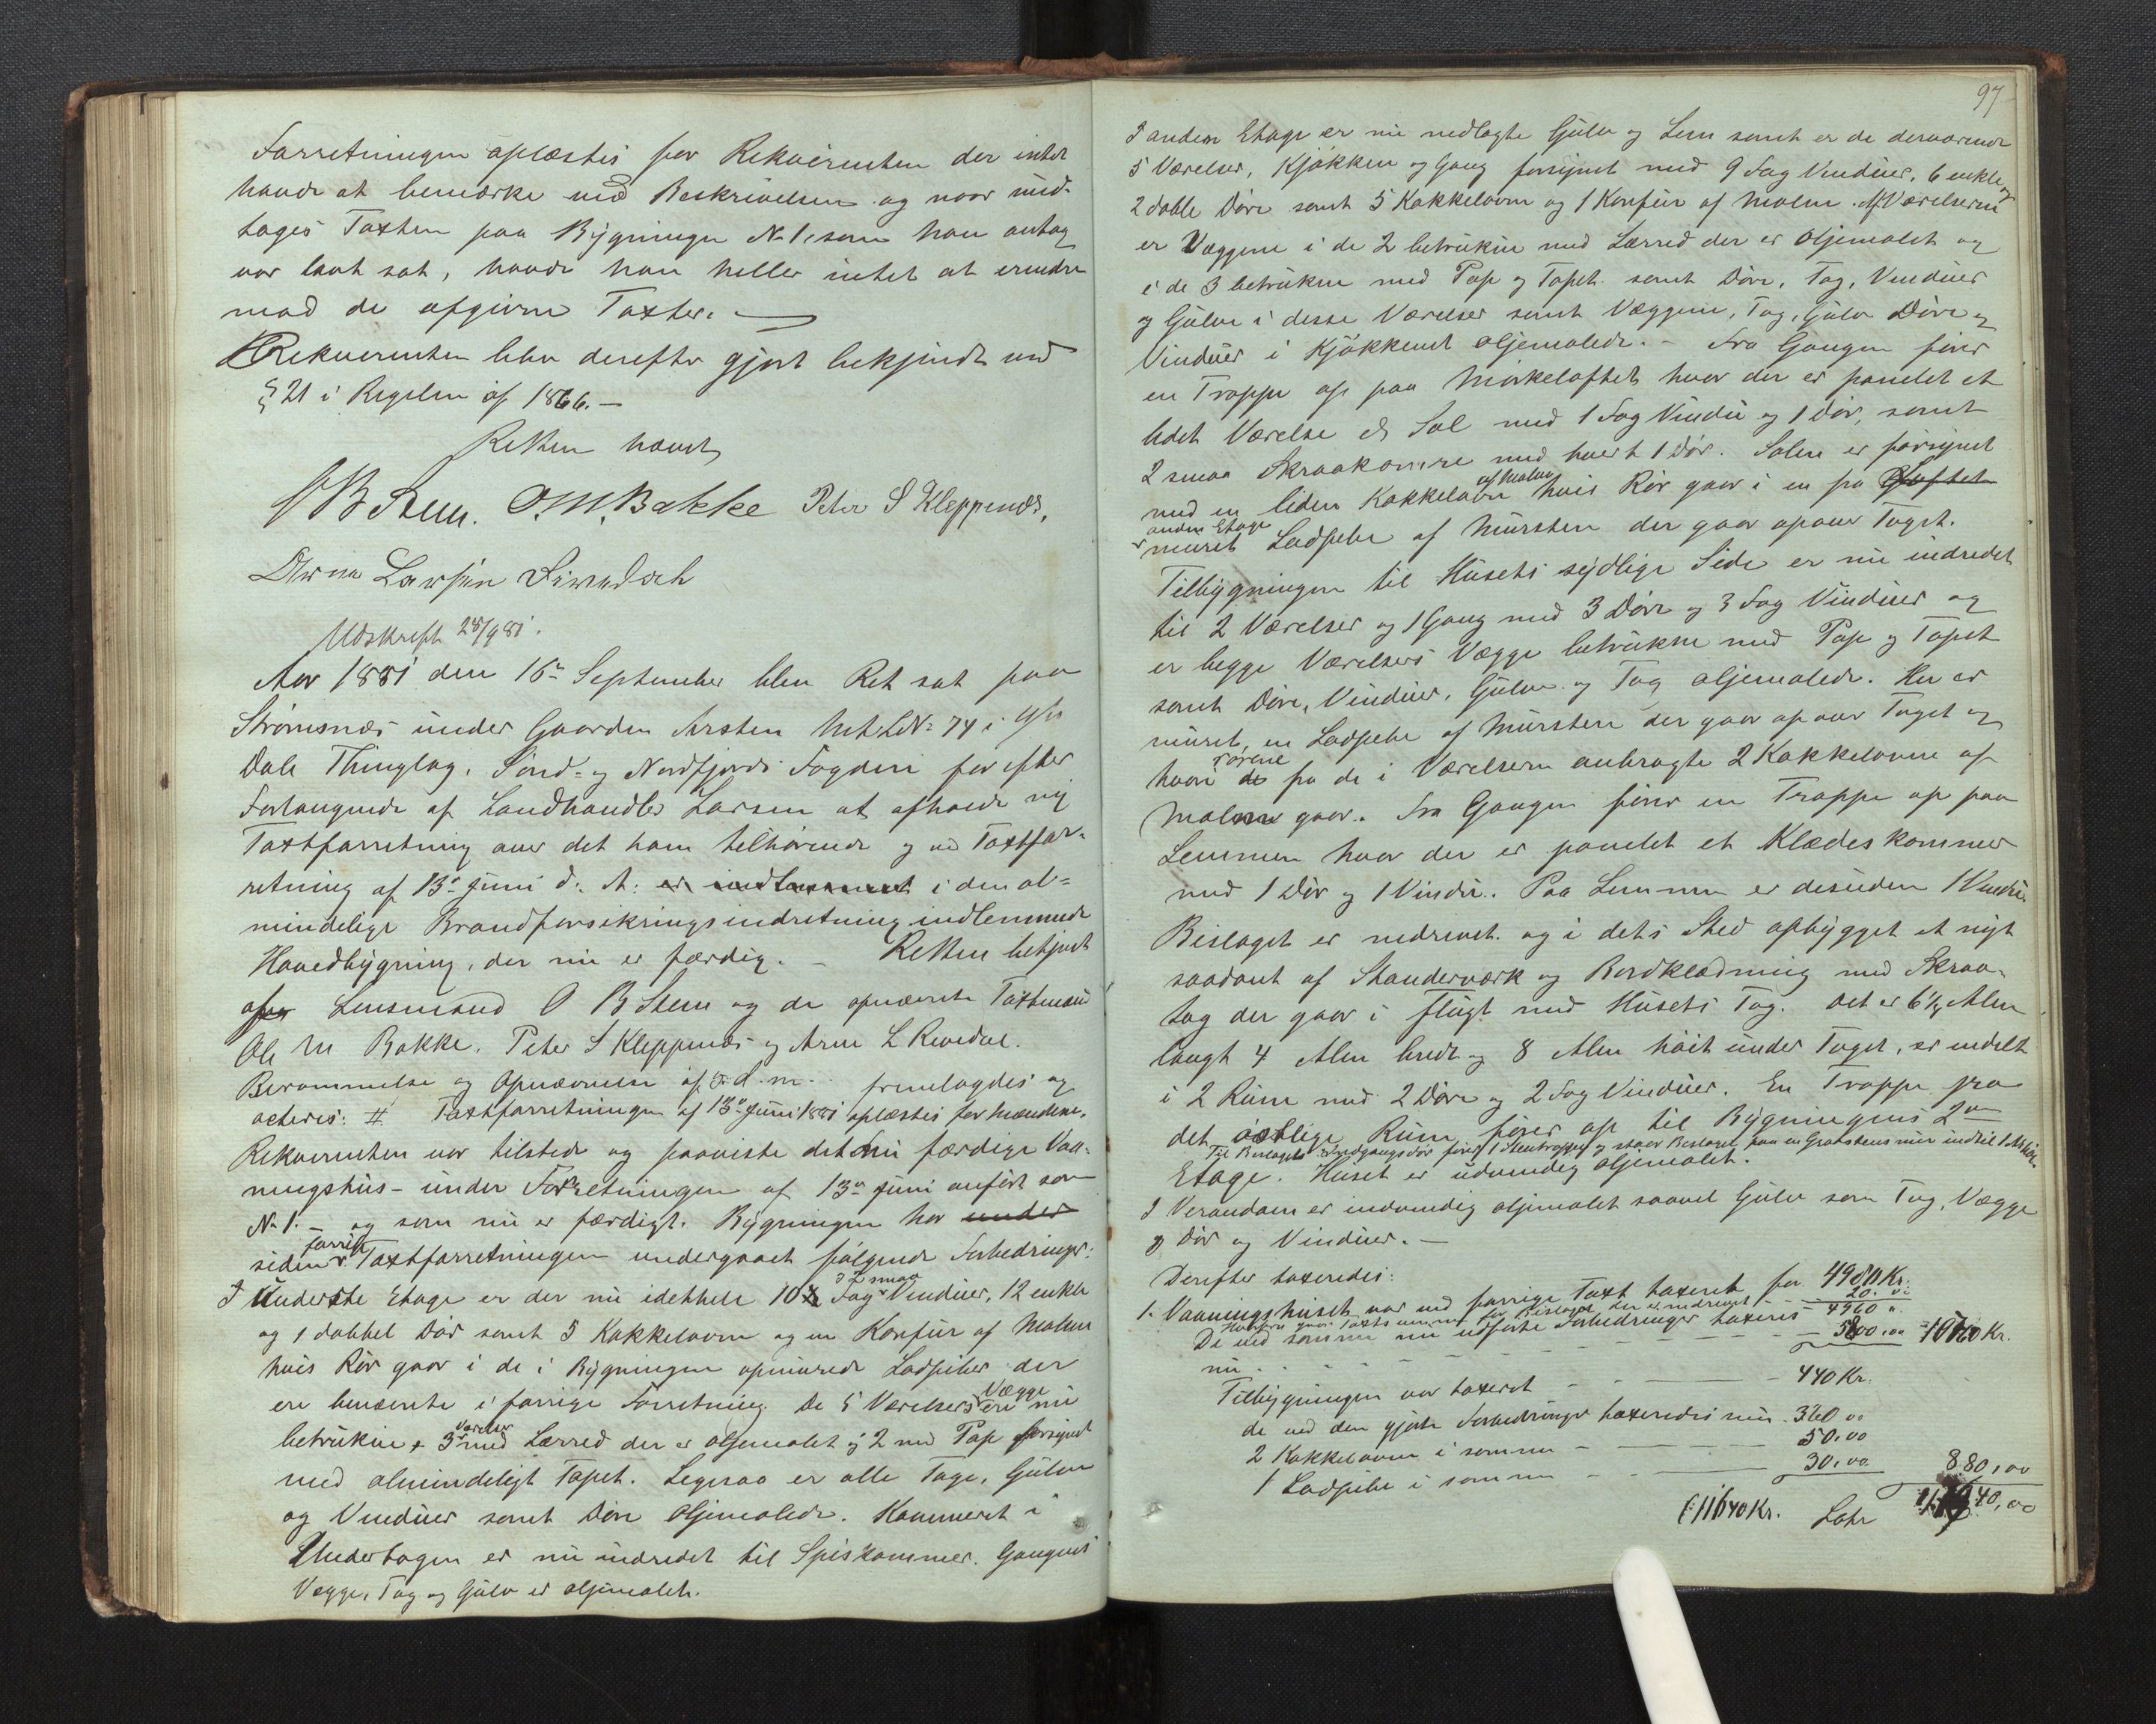 Forretningen oplæstes for Rekvirenten der intet
havde at bemærke ved Beskrivelsen og naar und-
tages Taxten paa Bygningen No 1, som han antog
var lavt sat, havde han heller intet at erindre
mod de afgivne Taxter.
Rekvirenten blev derefter gjort bekjendt med
§ 21 i Reglen af 1866. —
Retten hævet
O B Steen. O. M. Bakke Peter S Kleppenæs,
Arne Larsen
Udskrift 28/9 81.
Aar 1881 den 16de September blev Ret sat paa
Strømsnæs under Gaarden Arsten Mt. L No 74 i Ytre
Dale Thinglag, Sønd- og Nordfjords Fogderi for efter
Forlangende af Landhandler Larsen at afholde ny
Taxtforretning over det ham tilhørende og ved Taxtfor-
retning af 13de Juni d. A: er indlemmet i den al-
mindelige Brandforsikringsindretning indlemmede
Hovedbygning, der nu er færdig. — Retten betjent
af Lensmand O B Steen og de opnævnte Taxtmænd
Ole M Bakke, Peter S Kleppenæs og Arne L
Berammelse og Opnævnelse af d. m. fremlagdes og
acteres: # Taxtforretningen af 13de Juni 1881 oplæstes for Mændene.
Rekvirenten var tilstede og paaviste det nu færdige Vaa-
ningshus – under Forretningen af 13de Juni anført som
No 1. – og som nu er færdigt. Bygningen har under
siden forrige Taxtforretningen undergaaet følgende Forbedringer:
I Underste Etage er der nu idethele 10 Fag I 2 smaa Vinduer, 12 enkle
og 1 dobbel Dør samt 5 Kakkelovne og en Komfur af Malm
hvis Rør gaar i de i Bygningen opmurede Ladpiber der
ere benævnte i forrige Forretning. De 5 Værelsers Vægge ere nu
betrukne 3 Værelser med Lærred der er oljemalet og 2 med Pap forsynet
med almindeligt Tapet. Legesaa er alle Tage, Gulve
og Vinduer samt Døre Oljemalede. Kammeret i
Underetagen er nu indredet til Spiskammer. Gangens
Vægge, Tag og Gulv er oljemalet.
97
I anden Etage er nu nedlagte Gulv og Lem samt er de derværende
5 Værelser, Kjøkken og Gang forsynet med 9 Fag Vinduer, 6 enkle og
2 doble Døre samt 5 Kakkelovne og 1 Komfur af Malm. Af Værelserne
er Væggene i de 2 betrukne med Lærred der er Oljemalet og
i de 3 betrukne med Pap og Tapet samt Døre, Tag, Vinduer
og Gulve i disse Værelser samt Væggene, Tag, Gulv Døre og
Vinduer i Kjøkkenet oljemalede. – Fra Gangen fører
en Trappe op paa Mørkeloftet hvor der er panelet et
lidet Værelse el. Sal med 1 Fag Vindu og 1 Dør, samt
2 smaa Skraakamre med hvert 1 Dør. Salen er forsynet
med en liden Kakkelovn af Malm hvis Rør gaar i en fra Loftet
anden Etage muret Ladpibe af Mursten der gaar opover Taget.
Tilbygningen til Husets sydlige Side er nu indredet
til 2 Værelser og 1 Gang med 3 Døre og 3 Fag Vinduer og
er begge Værelsers Vægge betrukne med Pap og Tapet
samt Døre, Vinduer, Gulve og Tag oljemalede. Her er
muret en Ladpibe af Mursten der gaar opover Taget og
hvori Rørene fra de i Værelserne anbragte 2 Kakkelovne af
Malm gaar. Fra Gangen fører en Trappe op paa
Lemmen hvor der er panelet et Klædeskammer
med 1 Dør og 1 Vindu. Paa Lemmen er desuden 1 Vindu.
Bislaget er nedrevet og i dets Sted opbygget et nyt
saadant af Standerværk og Bordklædning med Skraa-
tag der gaar i Flugt med Husets Tag. Det er 6 1/4 Alen
langt 4 Alen bredt og 8 Alen høit under Taget, er indelt
i 2 Rum med 2 Døre og 2 Fag Vinduer. En Trappe fra
det østlige Rum fører op til Bygningens 2den
Til Bislagets Indgangsdør fører 1 Stentrappe og staar Bislaget paa en Graastensmur indtil
Etage. Huset er udvendig oljemalet.
I Verandaen er indvendig oljemalet saavel Gulv som Tag, Vægge
og Dør og Vinduer. —
Derefter taxeredes:
1. Vaaningshuset var ved forrige Taxt taxeret for 4980 Kr.
Herfra gaar Taxtsummen for Bislaget der er nedrevet 20. "
4960 "
De ved samme nu udførte Forbedringer taxeres
nu 5800.00 10760 Kr.
Tilbygningen var taxeret 440 Kr.
de ved den gjorte Forbedringer taxeredes nu 360 "
2 Kakkelovne i samme 50.00
1 Ladpibe i samme 30,00 880,00
(11640 Kr. Latr 11640,00